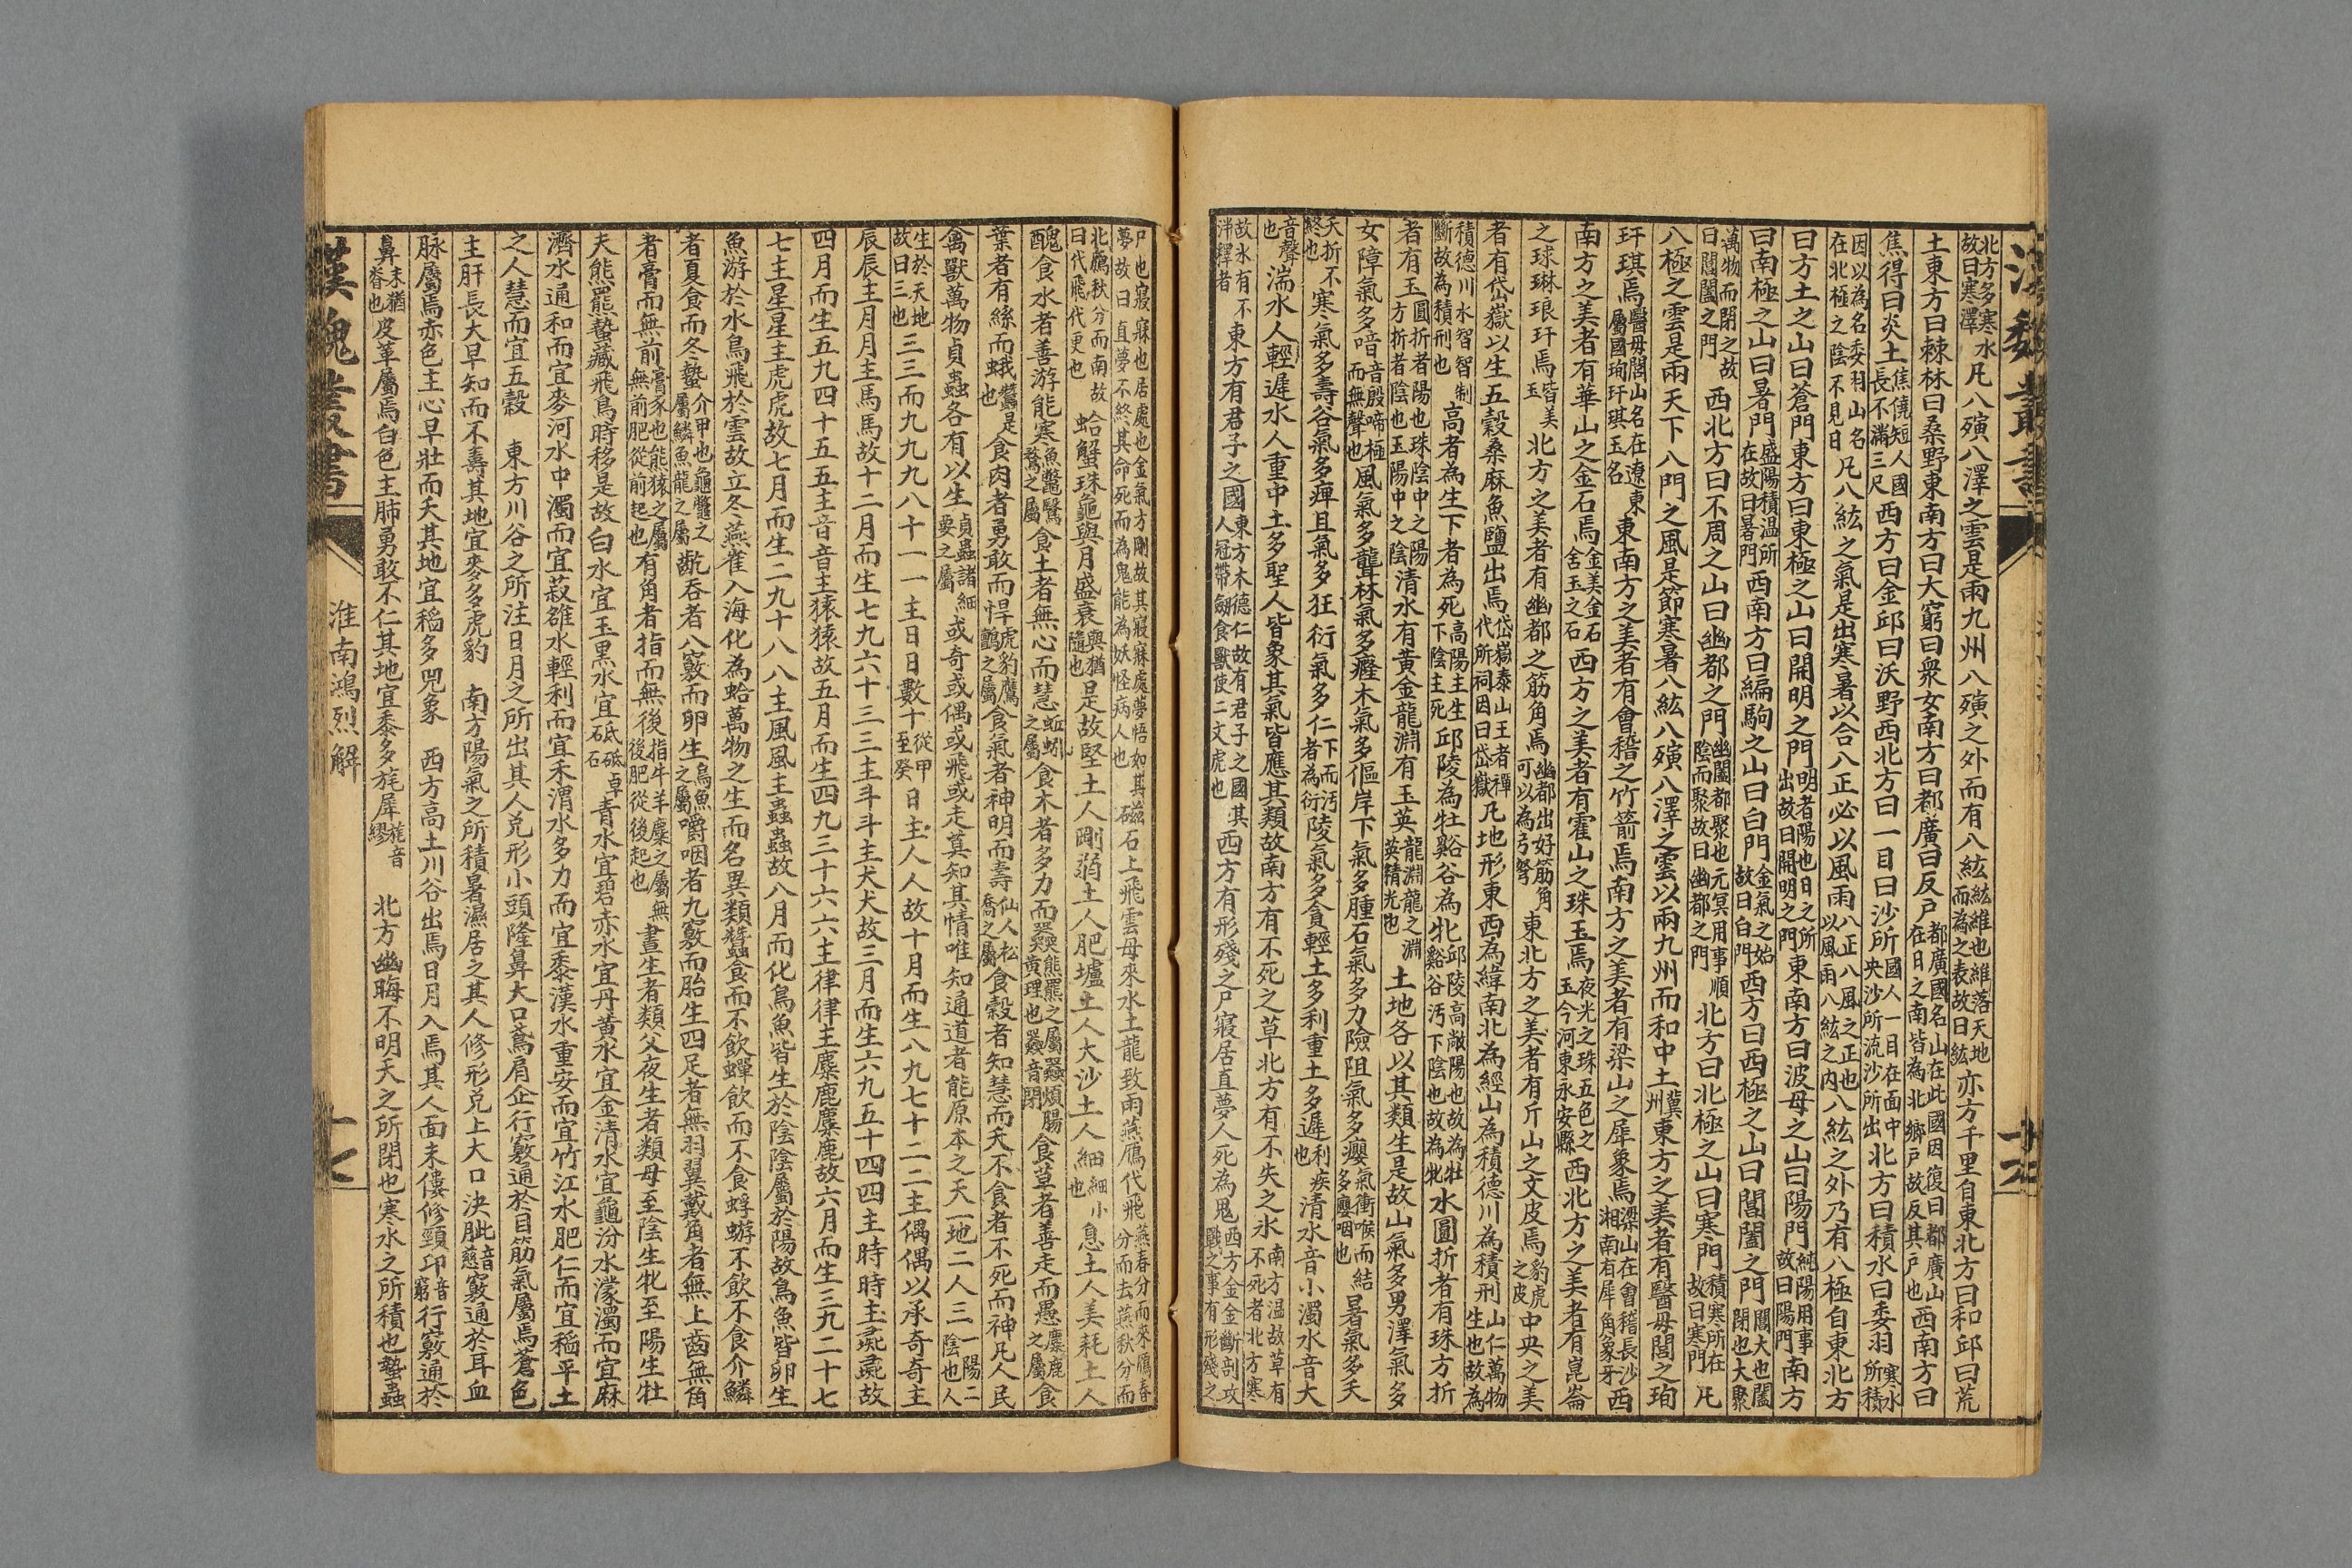 北方多寒水故曰寒澤凡八殥八澤之雲是雨九州八殥之外而有八紘紘維也維落天地而為之表故曰紘亦方千里自東北方曰和邱曰荒
土東方曰棘林曰桑野東南方曰大窮曰衆女南方曰都廣曰反戶都廣國名山在此國因復曰都廣山在日之南皆為北鄉戶故反其戶也西南方曰
焦僥曰炎土焦僥短人國長不滿三尺西方曰金邱曰沃野西北方曰一目曰沙所國人一目在面中央沙所流沙所出北方曰積水曰委羽寒水所積
因以為名委羽山名在北極之陰不見日凡八紘之氣是出寒暑以合八正必以風雨八正八風之正也以風雨八紘之內八紘之外乃有八極自東北方
曰方土之山曰蒼門東方曰東極之山曰開明之門明者陽也日之所出故曰開明之門東南方曰波母之山曰陽門純陽用事故曰陽門南方
曰南極之山曰暑門盛陽積温所在故曰暑門西南方曰編駒之山曰白門金氣之始故曰白門西方曰西極之山曰閶闔之門閶大也闔閉也大聚
萬物而閉之故曰閶闔之門西北方曰不周之山曰幽都之門幽闔都聚也元冥用事順陰而聚故曰幽都之門北方曰北極之山曰寒門積寒所在故曰寒門凡
八極之雲是雨天下八門之風是節寒暑八紘八殥八澤之雲以雨九州而和中土冀州東方之美者有醫毋閭之珣
玗琪焉醫毋閭山名在遼東屬國珣玗琪玉名東南方之美者有會稽之竹箭焉南方之美者有梁山之犀象焉梁山在會稽長沙湘南有犀角象牙西
南方之美者有華山之金石焉金美金石舍玉之石西方之美者有霍山之珠玉焉夜光之珠五色之玉今河東永安縣西北方之美者有崑崙
之球琳琅玕焉皆美玉北方之美者有幽都之筋角焉幽都出好筋角可以為弓弩東北方之美者有斥山之文皮焉豹虎之皮中央之美
者有岱嶽以生五穀桑麻魚鹽出焉岱嶽泰山王者禪代所祠因曰岱嶽凡地形東西為緯南北為經山為積德川為積刑山仁萬物生也故為
積德川水智智制斷故為積刑也高者為生下者為死高陽主生下陰主死邱陵為牡谿谷為牝邱陵高敞陽也故為牡谿谷汚下陰也故為牝水圓折者有珠方折
者有玉圓折者陽也珠陰中之陽方折者陰也玉陽中之陰清水有黄金龍淵有玉英龍淵龍之淵英精光也土地各以其類生是故山氣多男澤氣多
女障氣多喑音殷啼極而無聲也風氣多聾林氣多癃木氣多傴岸下氣多腫石氣多力險阻氣多癭氣衝喉而結多癭咽也暑氣多夭
夭折不終也寒氣多壽谷氣多痺且氣多狂衍氣多仁下而汚者為衍陵氣多貪輕土多利重土多遲利疾也清水音小濁水音大
音聲也湍水人輕遲水人重中土多聖人皆象其氣皆應其類故南方有不死之草北方有不失之氷南方温故草有不死者北方寒
故氷有不泮釋者東方有君子之國東方木德仁故有君子之國其人冠帶劒食獸使二文虎也西方有形殘之尸寢居直夢人死為鬼西方金金斷剖攻戰之事有形殘之
尸也寢寐也居處也金氣方剛故其寢寐處夢悟如其夢故曰直夢不終其命死而為鬼能為妖怪病人也磁石上飛雲母來水土龍致雨燕鴈代飛燕春分而來鴈春分而去燕秋分而
北鴈秋分而南故曰代飛代更也蛤蟹珠龜與月盛衰與猶隨也是故堅土人剛弱土人肥壚土人大沙土人細細小也息土人美耗土人
醜食水者善游能寒魚鼈鷖鶩之屬食土者無心而慧蚯蚓之屬食木者多力而䨻熊羆之屬䨻煩腸黄理也䨻音閉食草者善走而愚麋鹿之屬食
葉者有絲而蛾蠶是也食肉者勇敢而悍虎豹鷹鸇之屬食氣者神明而壽仙人松喬之屬食穀者知慧而夭不食者不死而神凡人民
禽獸萬物貞蟲各有以生貞蟲諸細要之屬或奇或偶或飛或走莫知其情唯知通道者能原本之天一地二人三一陽二陰也人
生於天地故曰三也三三而九九九八十一一主日日數十從甲至癸日主人人故十月而生八九七十二二主偶偶以承奇奇主
辰辰主月月主馬馬故十二月而生七九六十三三主斗斗主犬犬故三月而生六九五十四四主時時主彘彘故
四月而生五九四十五五主音音主猿猿故五月而生四九三十六六主律律主麋鹿麋鹿故六月而生三九二十七
七主星星主虎虎故七月而生二九十八八主風風主蟲蟲故八月而化鳥魚皆生於陰陰屬於陽故鳥魚皆卵生
魚游於水鳥飛於雲故立冬燕雀入海化為蛤萬物之生而名異類蠶食而不飲蟬飲而不食蜉蝣不飲不食介鱗
者夏食而冬蟄介甲也龜鼈之屬鱗魚龍之屬齕吞者八竅而卵生鳥魚之屬嚼咽者九竅而胎生四足者無羽翼戴角者無上齒無角
者膏而無前膏豕也能猿之屬無前肥從前起也有角者指而無後指牛羊麋之屬無後肥從後起也晝生者類父夜生者類母至陰生牝至陽生牡
夫熊羆蟄藏飛鳥時移是故白水宜玉黒水宜砥砥卓石青水宜碧赤水宜丹黄水宜金清水宜龜汾水濛濁而宜麻
濟水通和而宜麥河水中濁而宜菽雒水輕利而宜禾渭水多力而宜黍漢水重安而宜竹江水肥仁而宜稻平土
之人慧而宜五穀 東方川谷之所注日月之所出其人兑形小頭隆鼻大口鳶肩企行竅通於目筋氣屬焉蒼色
主肝長大早知而不壽其地宜麥多虎豹 南方陽氣之所積暑濕居之其人修形兑上大口決眦音慈竅通於耳血
脉屬焉赤色主心早壯而夭其地宜稻多兕象 西方高土川谷出焉日月入焉其人面末僂修頸卬音窮行竅通於
鼻末猶脊也皮革屬焉白色主肺勇敢不仁其地宜黍多旄犀旄音繆 北方幽晦不明天之所閉也寒水之所積也蟄蟲
漢魏叢書 淮南鴻烈解 十七